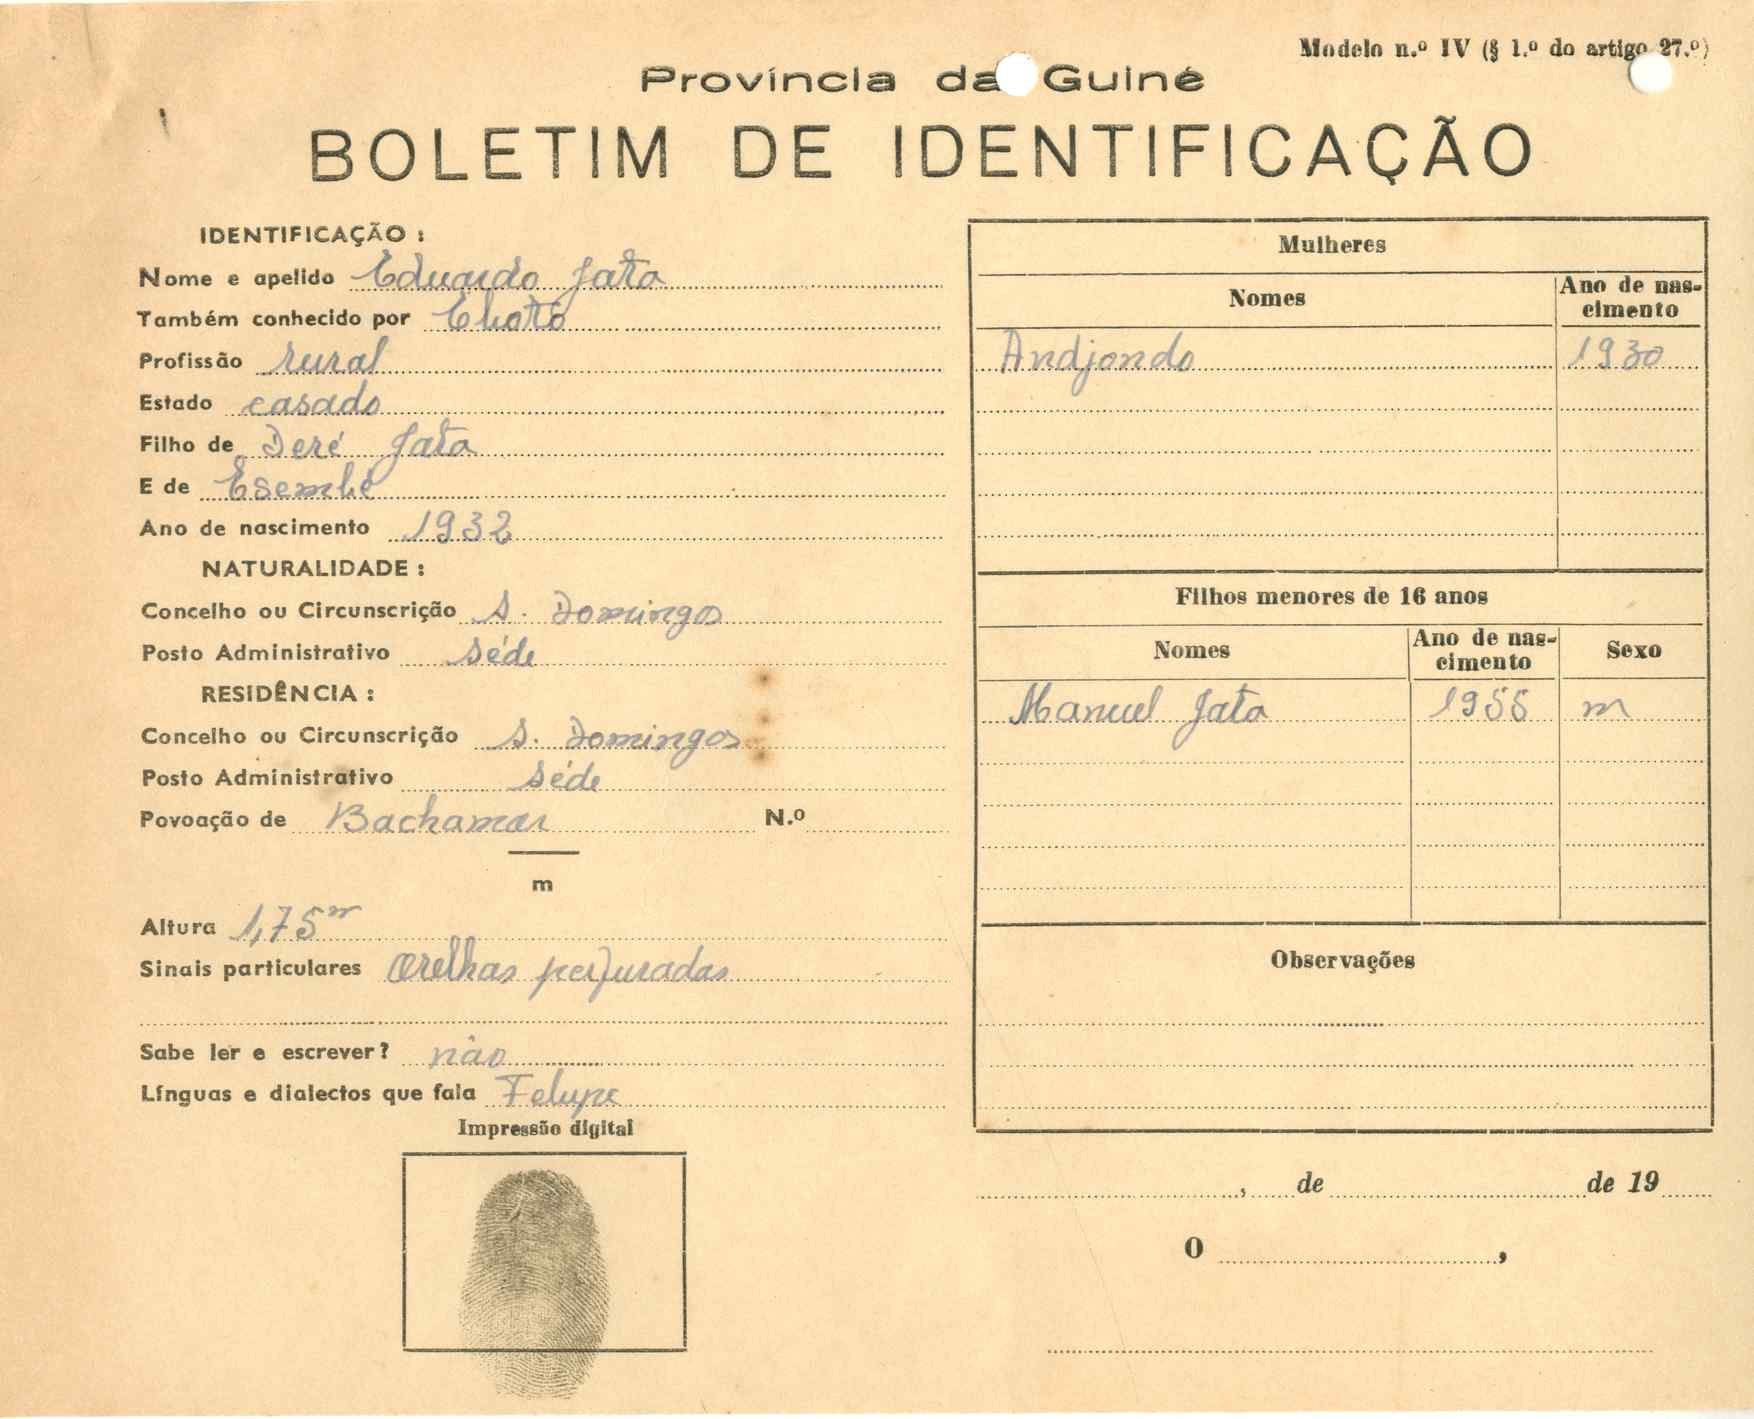 Modelo n.º IV (§ 1.º do artigo 27.º)
Província da Guiné
BOLETIM DE IDENTIFICAÇÃO
IDENTIFICAÇÃO :
Nome e apelido Eduardo Jata
Também conhecido por
Profissão rural
Estado casado
Filho de Deré Jata
E de
Ano de nascimento 1932
NATURALIDADE :
Concelho ou Circunscrição S. Domingos
Posto Administrativo Séde
RESIDÊNCIA :
Concelho ou Circunscrição S. Domingos
Posto Administrativo Séde
Povoação de Bachamar N.º
m
Altura 1,75m
Sinais particulares Orelhas perfuradas
Sabe ler e escrever? não
Línguas e dialectos que fala Felupe
Impressão digital
Mulheres
Nomes
Ano de nas-
cimento
Andjondo 1930
Filhos menores de 16 anos
Nomes
Ano de nas-
cimento
Sexo
Manuel Jata 1955 m
Observações
, de de 19
O ,